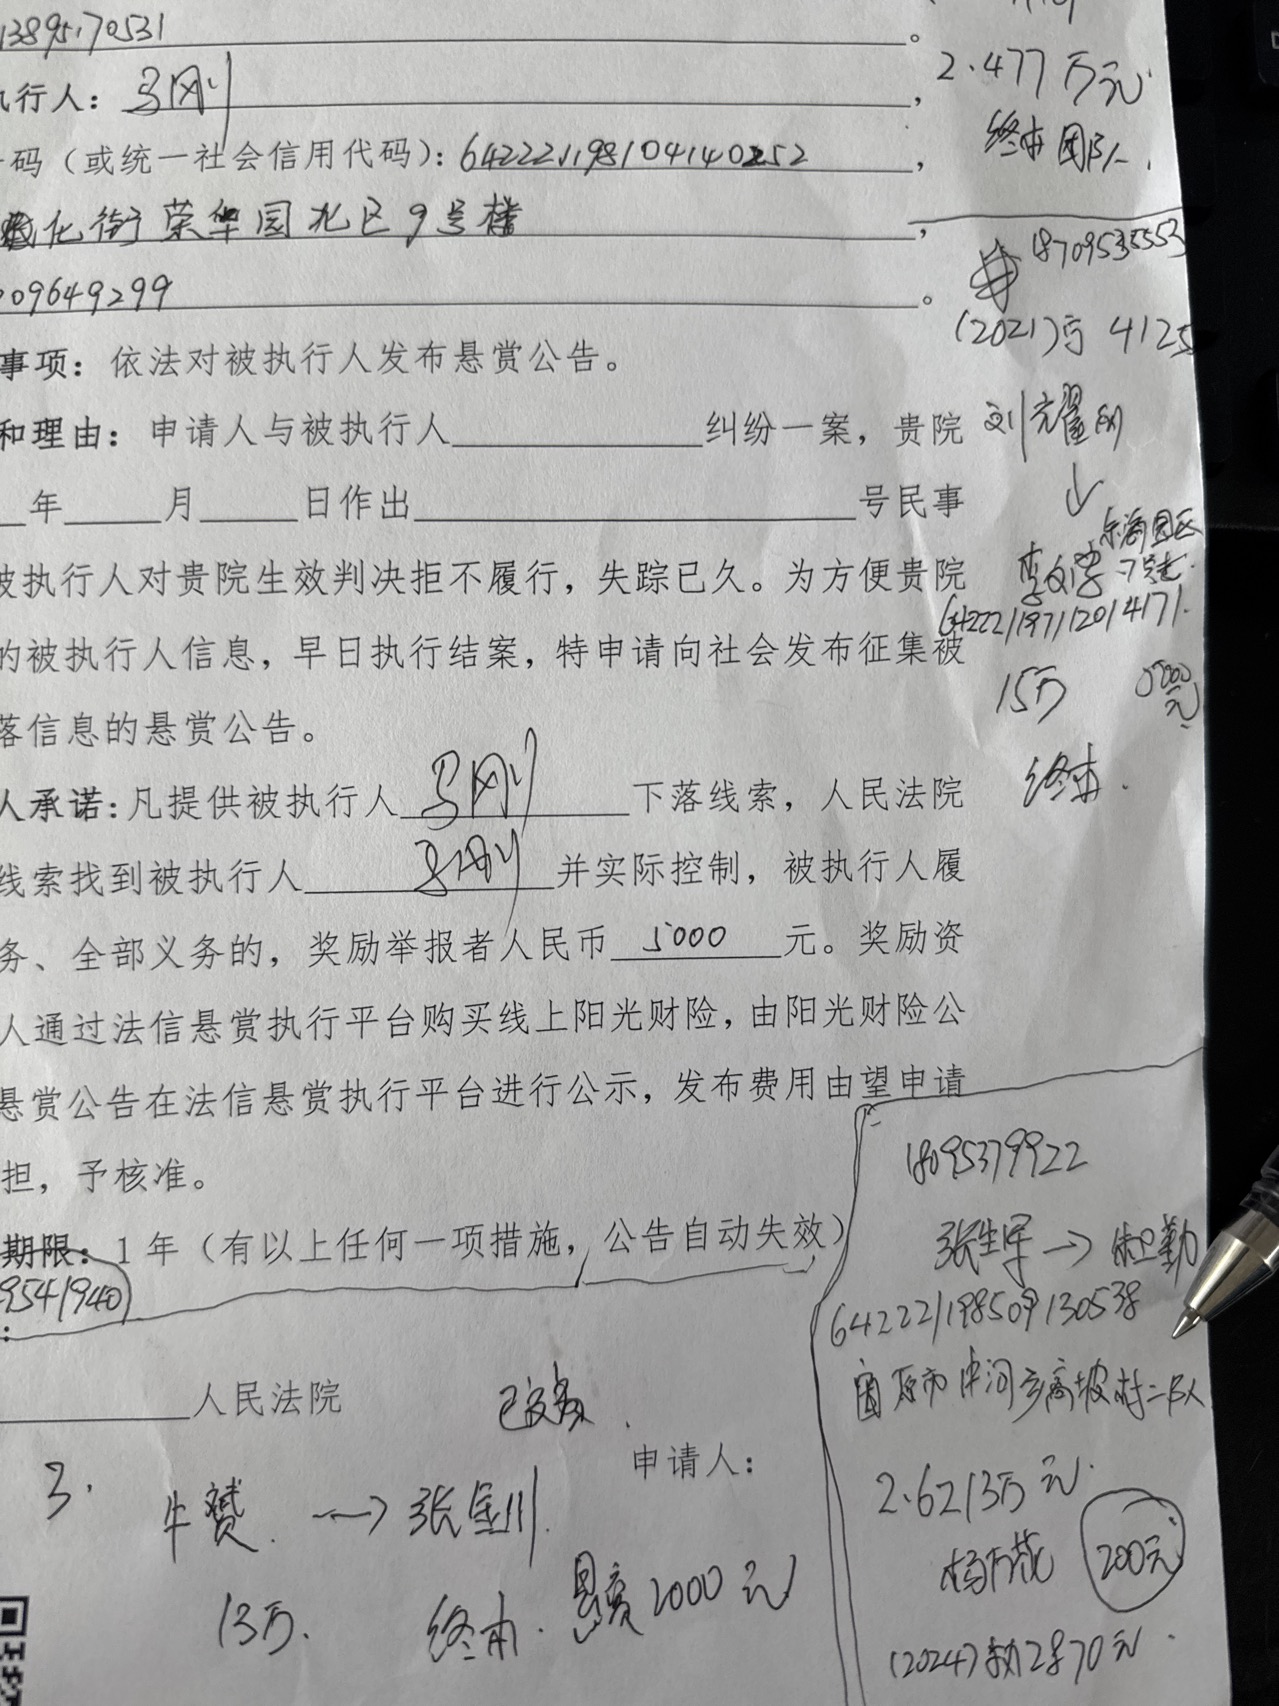 13895170531。
执行人：马刚，
码（或统一社会信用代码）：642221198104140252，
化街荣华园北区9号楼，
09649299。
事项：依法对被执行人发布悬赏公告。
和理由：申请人与被执行人 纠纷一案，贵院
年 月 日作出 号民事
被执行人对贵院生效判决拒不履行，失踪已久。为方便贵院
的被执行人信息，早日执行结案，特申请向社会发布征集被
落信息的悬赏公告。
人承诺：凡提供被执行人 马刚 下落线索，人民法院
线索找到被执行人 马刚 并实际控制，被执行人履
务、全部义务的，奖励举报者人民币 5000 元。奖励资
人通过法信悬赏执行平台购买线上阳光财险，由阳光财险公
悬赏公告在法信悬赏执行平台进行公示，发布费用由望申请
担，予核准。
期限：1年（有以上任何一项措施，公告自动失效）
9541940
人民法院
申请人：
3.
牛赟 → 张金川
13万. 终本. 悬赏2000元
2.477万元
终本团队.
18709535553
(2021) 4125
刘
↓
李
642221197112014171.
15万 5000元
终本.
18095379922
张生军→
642221198509130538
固原市中河乡高坡村二队
2.6213万元
杨万
200元
(2024) 2870元